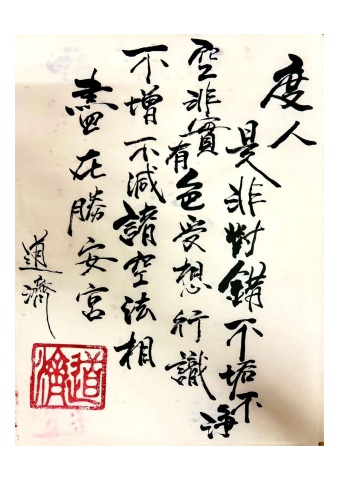 度人
是非對錯不垢不淨
空非實有色受想行識
不增不減諸空法相
盡在勝安宮
道濟
道濟